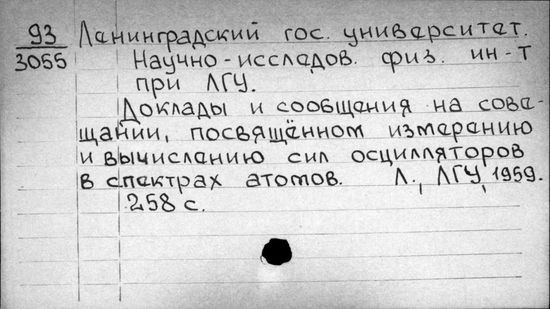 93 Ленинградский гос. университет.
3055 Научно-исследов. физ. ин-т
при ЛГУ.
Доклады и сообщения на сове-
щании, посвящённом измерению
и вычислению сил осцилляторов
в спектрах атомов. Л., ЛГУ, 1959.
258 с.